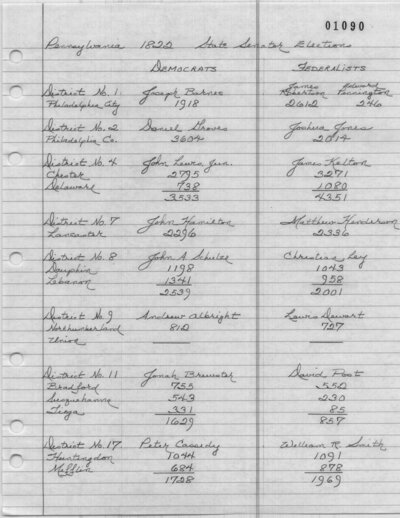 01090
Pennsylvania 1822 State Senator Elections
DEMOCRATS FEDERALISTS
District No. 1 Joseph Barnes James Robertson Edward Pennington
Philadelphia City 1918 2612 246
District No. 2 Daniel Groves Joshua Jones
Philadelphia Co. 3604 2014
District No. 4 John Lewis, Jun. James Kelton
Chester 2795 3271
Delaware 738 1080
3533 4351
District No. 7 John Hamilton Matthew Henderson
Lancaster 2296 2336
District No. 8 John A Schulze Christian Ley
Dauphin 1198 1043
Lebanon 1341 958
2539 2001
District No. 9 Andrew Albright Lewis Dewart
Northumberland 812 727
Union — —
District No. 11 Jonah Brewster David Post
Bradford 755 552
Susquehanna 543 230
Tioga 331 85
1629 857
District No. 17 Peter Cassidy William R Smith
Huntingdon 1044 1091
Mifflin 684 878
1728 1969